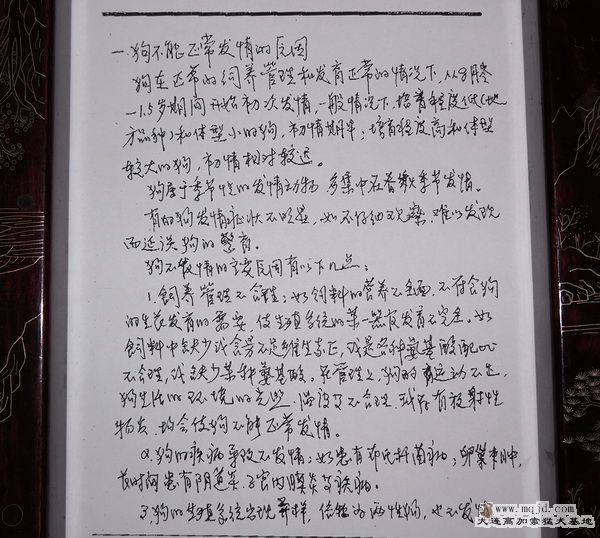 一、狗不能正常发情的原因
狗在正常的饲养管理和发育正常的情况下,从8月龄
—1.5岁期间开始初次发情,一般情况下,培育程度低(地
方品种)和体型小的狗,初情期早;培育程度高和体型
较大的狗,初情相对较迟。
狗属于季节性的发情动物,多集中在春秋季节发情。
有的狗发情症状不明显,如不仔细观察,难以发现
而延误狗的繁育。
狗不发情的主要原因有以下几点:
1.饲养管理不合理:如饲料的营养不全面,不符合狗
的生长发育的需要,使生殖系统的某一器官发育不完全。如
饲料中缺少或含量不足维生素E,或是各种氨基酸配比
不合理,或缺少某种氨基酸。在管理上,狗的运动不足,
狗生活的环境的光照、温度等不合理,或存有放射性
物质,均会使狗不能正常发情。
2.狗的疾病导致不发情:如患有布氏杆菌病;卵巢囊肿,
长时间患有阴道炎、子宫内膜炎等疾病。
3.狗的生殖系统出现异样,但较为两性狗,也不发情
www.mqjd.com
大连高加索猛犬基地